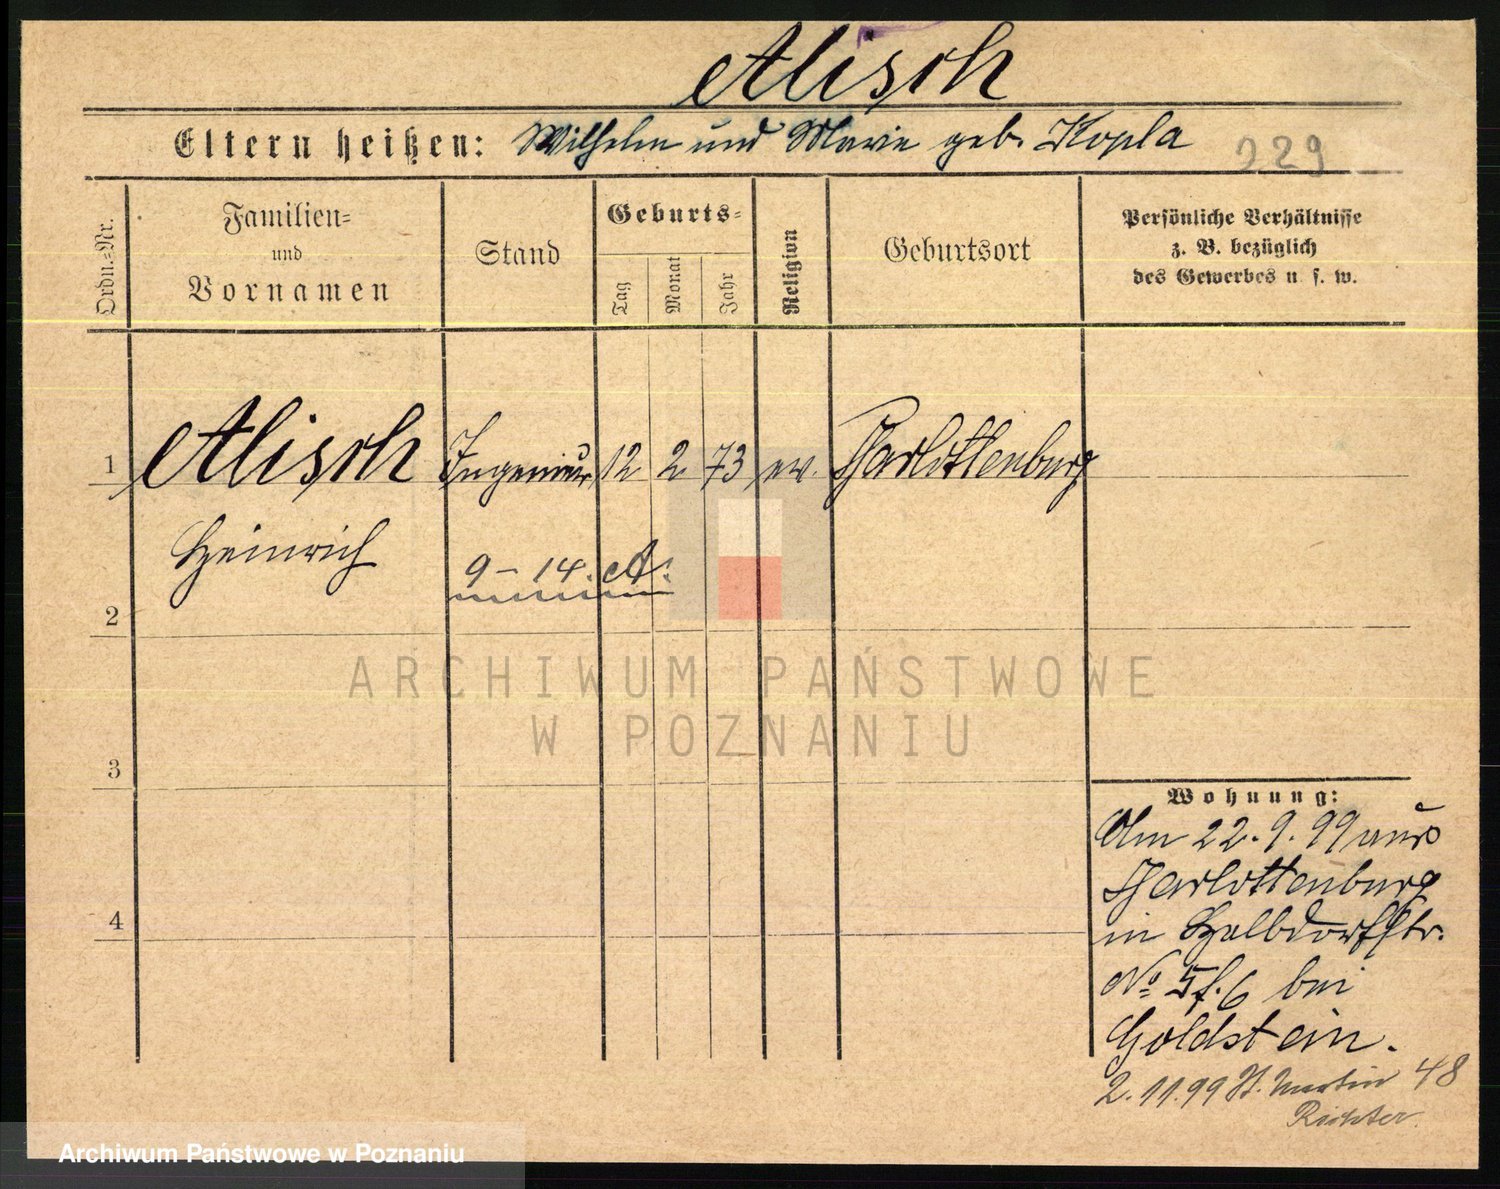 Alisch
Eltern heißen: Wilhelm und Marie geb. Kopla
229
Ordn.-Nr.
Familien-
und
Vornamen
Stand
Geburts-
Tag
Monat
Jahr
Religion
Geburtsort
Persönliche Verhältnisse
z. B. bezüglich
des Gewerbes u. s. w.
1 Alisch Ingenieur 12 2. 73 ev. Charlottenburg
Heinrich
9 – 14. A.
2
3
4
ARCHIWUM PAŃSTWOWE
W POZNANIU
Wohnung:
Am 22. 9. 99 aus
Charlottenburg
in Halbdorfstr.
No 5 f. 6 bei
Goldstein.
2. 11. 99 St. Martin 48
Richter.
Archiwum Państwowe w Poznaniu